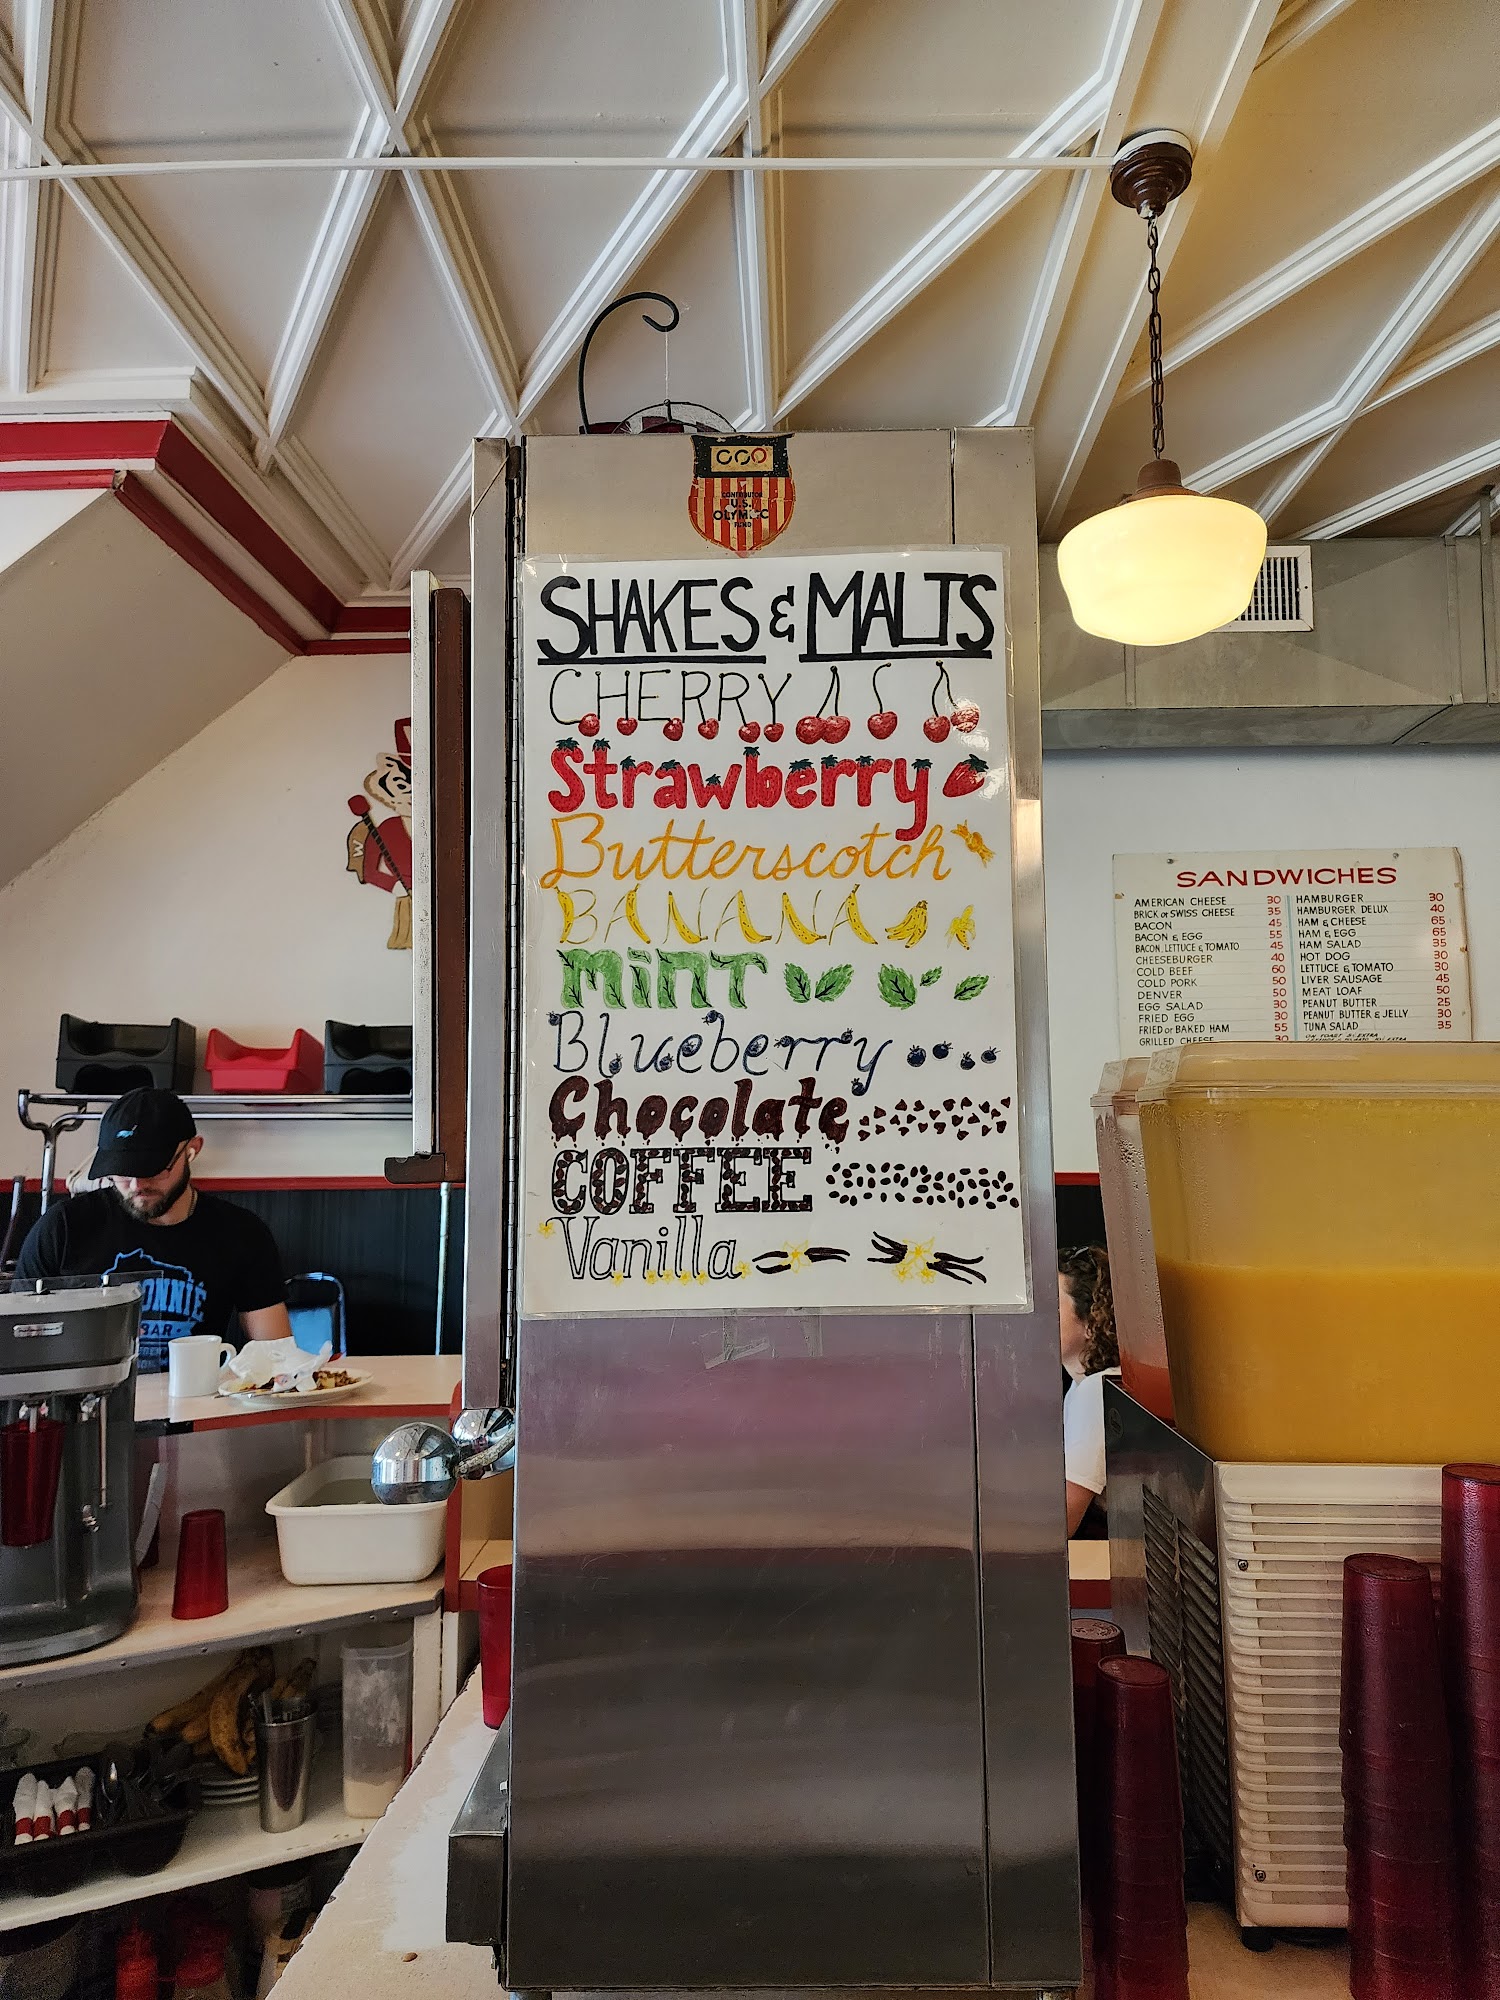 CONTRIBUTOR
U.S.
OLYMPIC
FUND
SHAKES & MALTS
CHERRY
Strawberry
Butterscotch
BANANA
MiNT
Blueberry
Chocolate
COFFEE
Vanilla
W
ONNIE
BAR
SANDWICHES
AMERICAN CHEESE 30
BRICK or SWISS CHEESE 35
BACON 45
BACON & EGG 55
BACON, LETTUCE & TOMATO 45
CHEESEBURGER 40
COLD BEEF 60
COLD PORK 50
DENVER 50
EGG SALAD 30
FRIED EGG 30
FRIED or BAKED HAM 55
GRILLED CHEESE 30
HAMBURGER 30
HAMBURGER DELUX 40
HAM & CHEESE 65
HAM & EGG 65
HAM SALAD 35
HOT DOG 30
LETTUCE & TOMATO 30
LIVER SAUSAGE 45
MEAT LOAF 50
PEANUT BUTTER 25
PEANUT BUTTER & JELLY 30
TUNA SALAD 35
ON TOAST 5¢ EXTRA